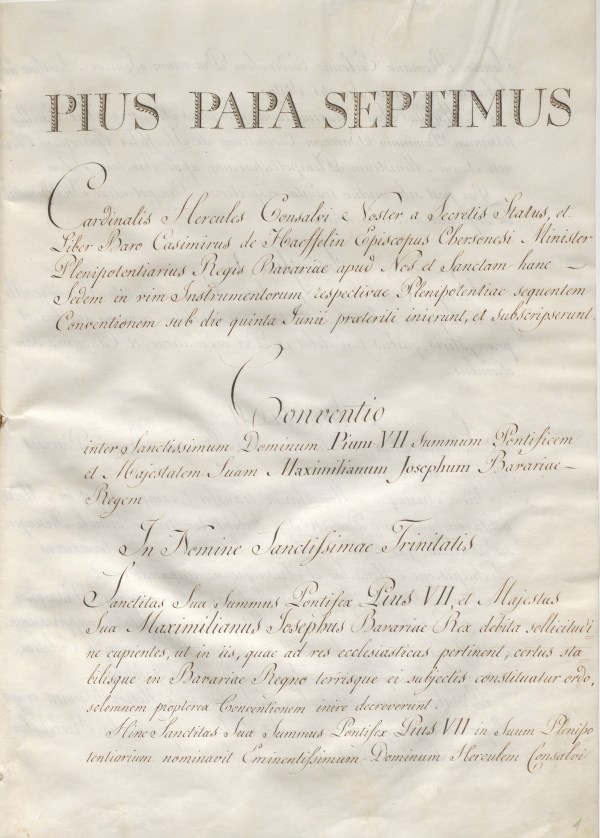 PIUS PAPA SEPTIMUS
Cardinalis Hercules Consalvi Noster a Secretis Status, et
Liber Baro Casimirus de Haeffelin Episcopus Chersonesi Minister
Plenipotentiarius Regis Bavariae apud Nos et Sanctam hanc –
Sedem in vim Instrumentorum respectivae Plenipotentiae sequentem
Conventionem sub die quinta Junii praeteriti inierunt, et subscripserunt.
Conventio
inter Sanctissimum Dominum Pium VII Summum Pontificem
et Majestatem Suam Maximilianum Josephum Bavariae –
Regem
In Nomine Sanctissimae Trinitatis
Sanctitas Sua Summus Pontifex Pius VII, et Majestas
Sua Maximilianus Josephus Bavariae Rex debita sollicitudi
ne cupientes, ut in iis, quae ad res ecclesiasticas pertinent, certus sta
bilisque in Bavariae Regno terrisque ei subjectis constituatur ordo,
solemnem propterea Conventionem inire decreverunt.
Hinc Sanctitas Sua Summus Pontifex Pius VII in Suum Plenipo
tentiarium nominavit Eminentissimum Dominum Herculem Consalvi